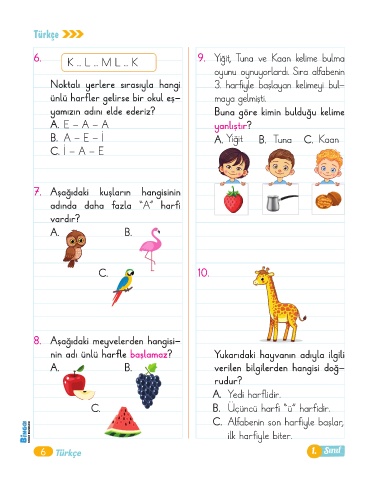 Türkçe
6. K .. L .. M L .. K
Noktalı yerlere sırasıyla hangi
ünlü harfler gelirse bir okul eş-
yamızın adını elde ederiz?
A. E – A – A
B. A – E – İ
C. İ – A – E
7. Aşağıdaki kuşların hangisinin
adında daha fazla "A" harfi
vardır?
A. B.
C.
8. Aşağıdaki meyvelerden hangisi-
nin adı ünlü harfle başlamaz?
A. B.
C.
9. Yiğit, Tuna ve Kaan kelime bulma
oyunu oynuyorlardı. Sıra alfabenin
3. harfiyle başlayan kelimeyi bul-
maya gelmişti.
Buna göre kimin bulduğu kelime
yanlıştır?
A. Yiğit B. Tuna C. Kaan
10.
Yukarıdaki hayvanın adıyla ilgili
verilen bilgilerden hangisi doğ-
rudur?
A. Yedi harflidir.
B. Üçüncü harfi "ü" harfidir.
C. Alfabenin son harfiyle başlar,
ilk harfiyle biter.
BİNGO!
6 Türkçe
1. Sınıf